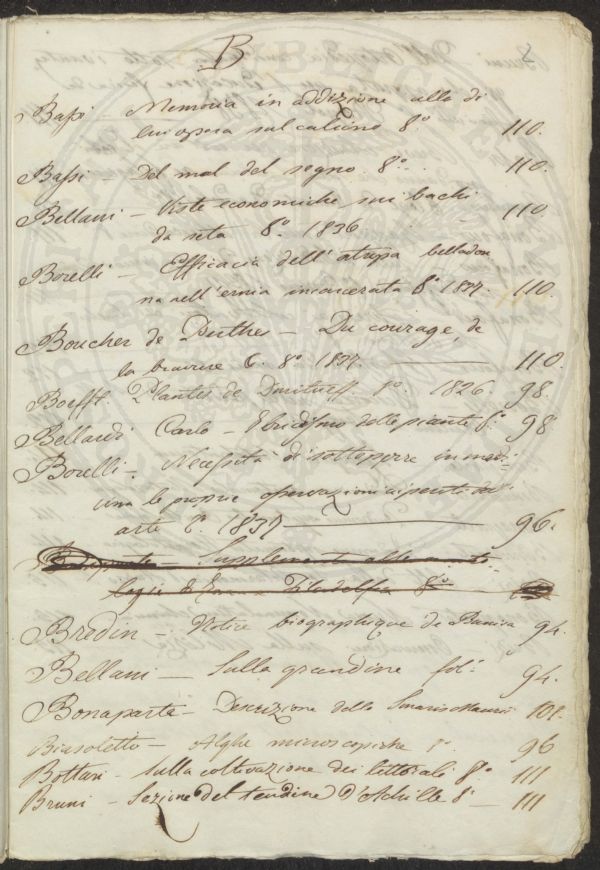 B
Bassi – Memoria in addizione alla di
lui opera sul calcino 8.° – 110.
Bassi – Del mal del segno. 8.° – 110.
Bellani – Viste economiche sui bachi
da seta 8.° 1836 – 110
Borelli – Efficacia dell'atropa belladon
na nell'ernia incarcerata 8.° 1837. – 110.
Boucher de Perthes – Du courage, de
la bravure &. 8.° 1837. – 110.
Plantes de 1826. 98.
Bellardi Carlo – Ibridismo delle piante 8.° 98
Borelli – Necessità di sottoporre in medi
cina le proprie
arte 8.° 1837 – 96.
Bonaparte – Supplement
Filadelfia 8.°
Bredin – Notice biographique de 94.
Bellani – Sulla grandine fol.° 94.
Bonaparte – Descrizione dello 101.
Biasoletto – Alghe microscopiche 8.° 96
Bottari – Sulla coltivazione dei littorali 8.° 111
Bruni – Sezione del tendine d'Achille 8.° – 111